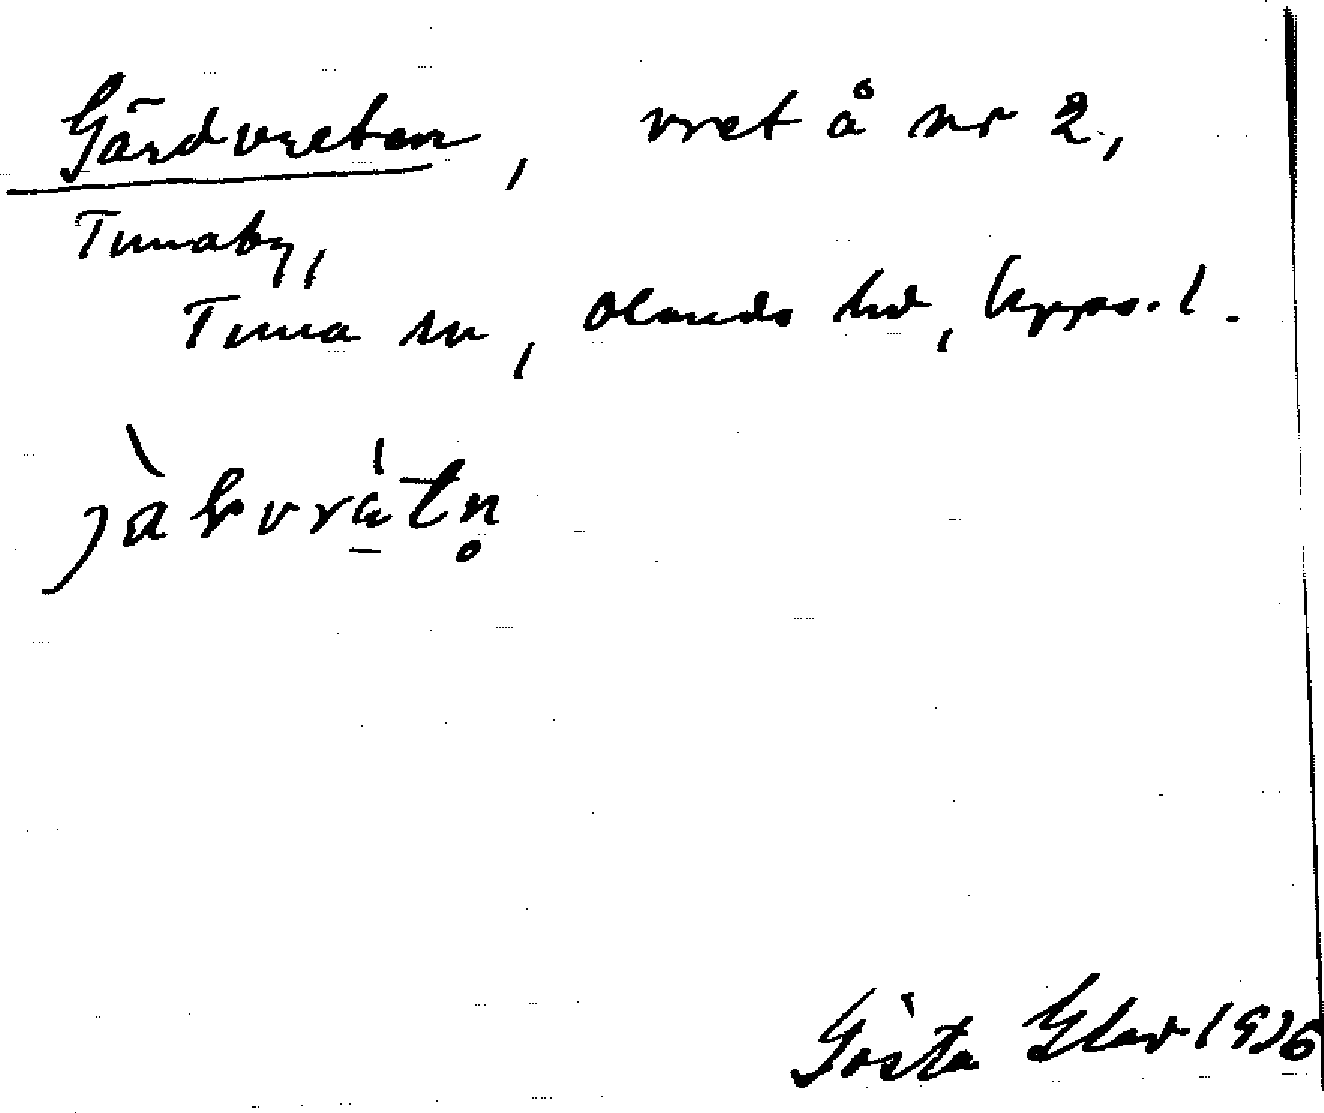 Gärdvreten, vret å nr 2,
Tunaby,
Tuna sn, Olands hd, Upps. l.
Gösta Glad 1936